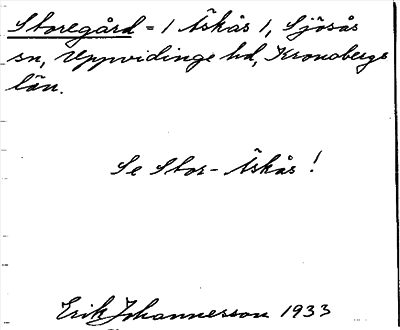 Storegård = / Äskås /, Sjösås
sn, Uppvidinge hd, Kronobergs
län.
Se Stor-Äskås!
Erik Johannesson 1933